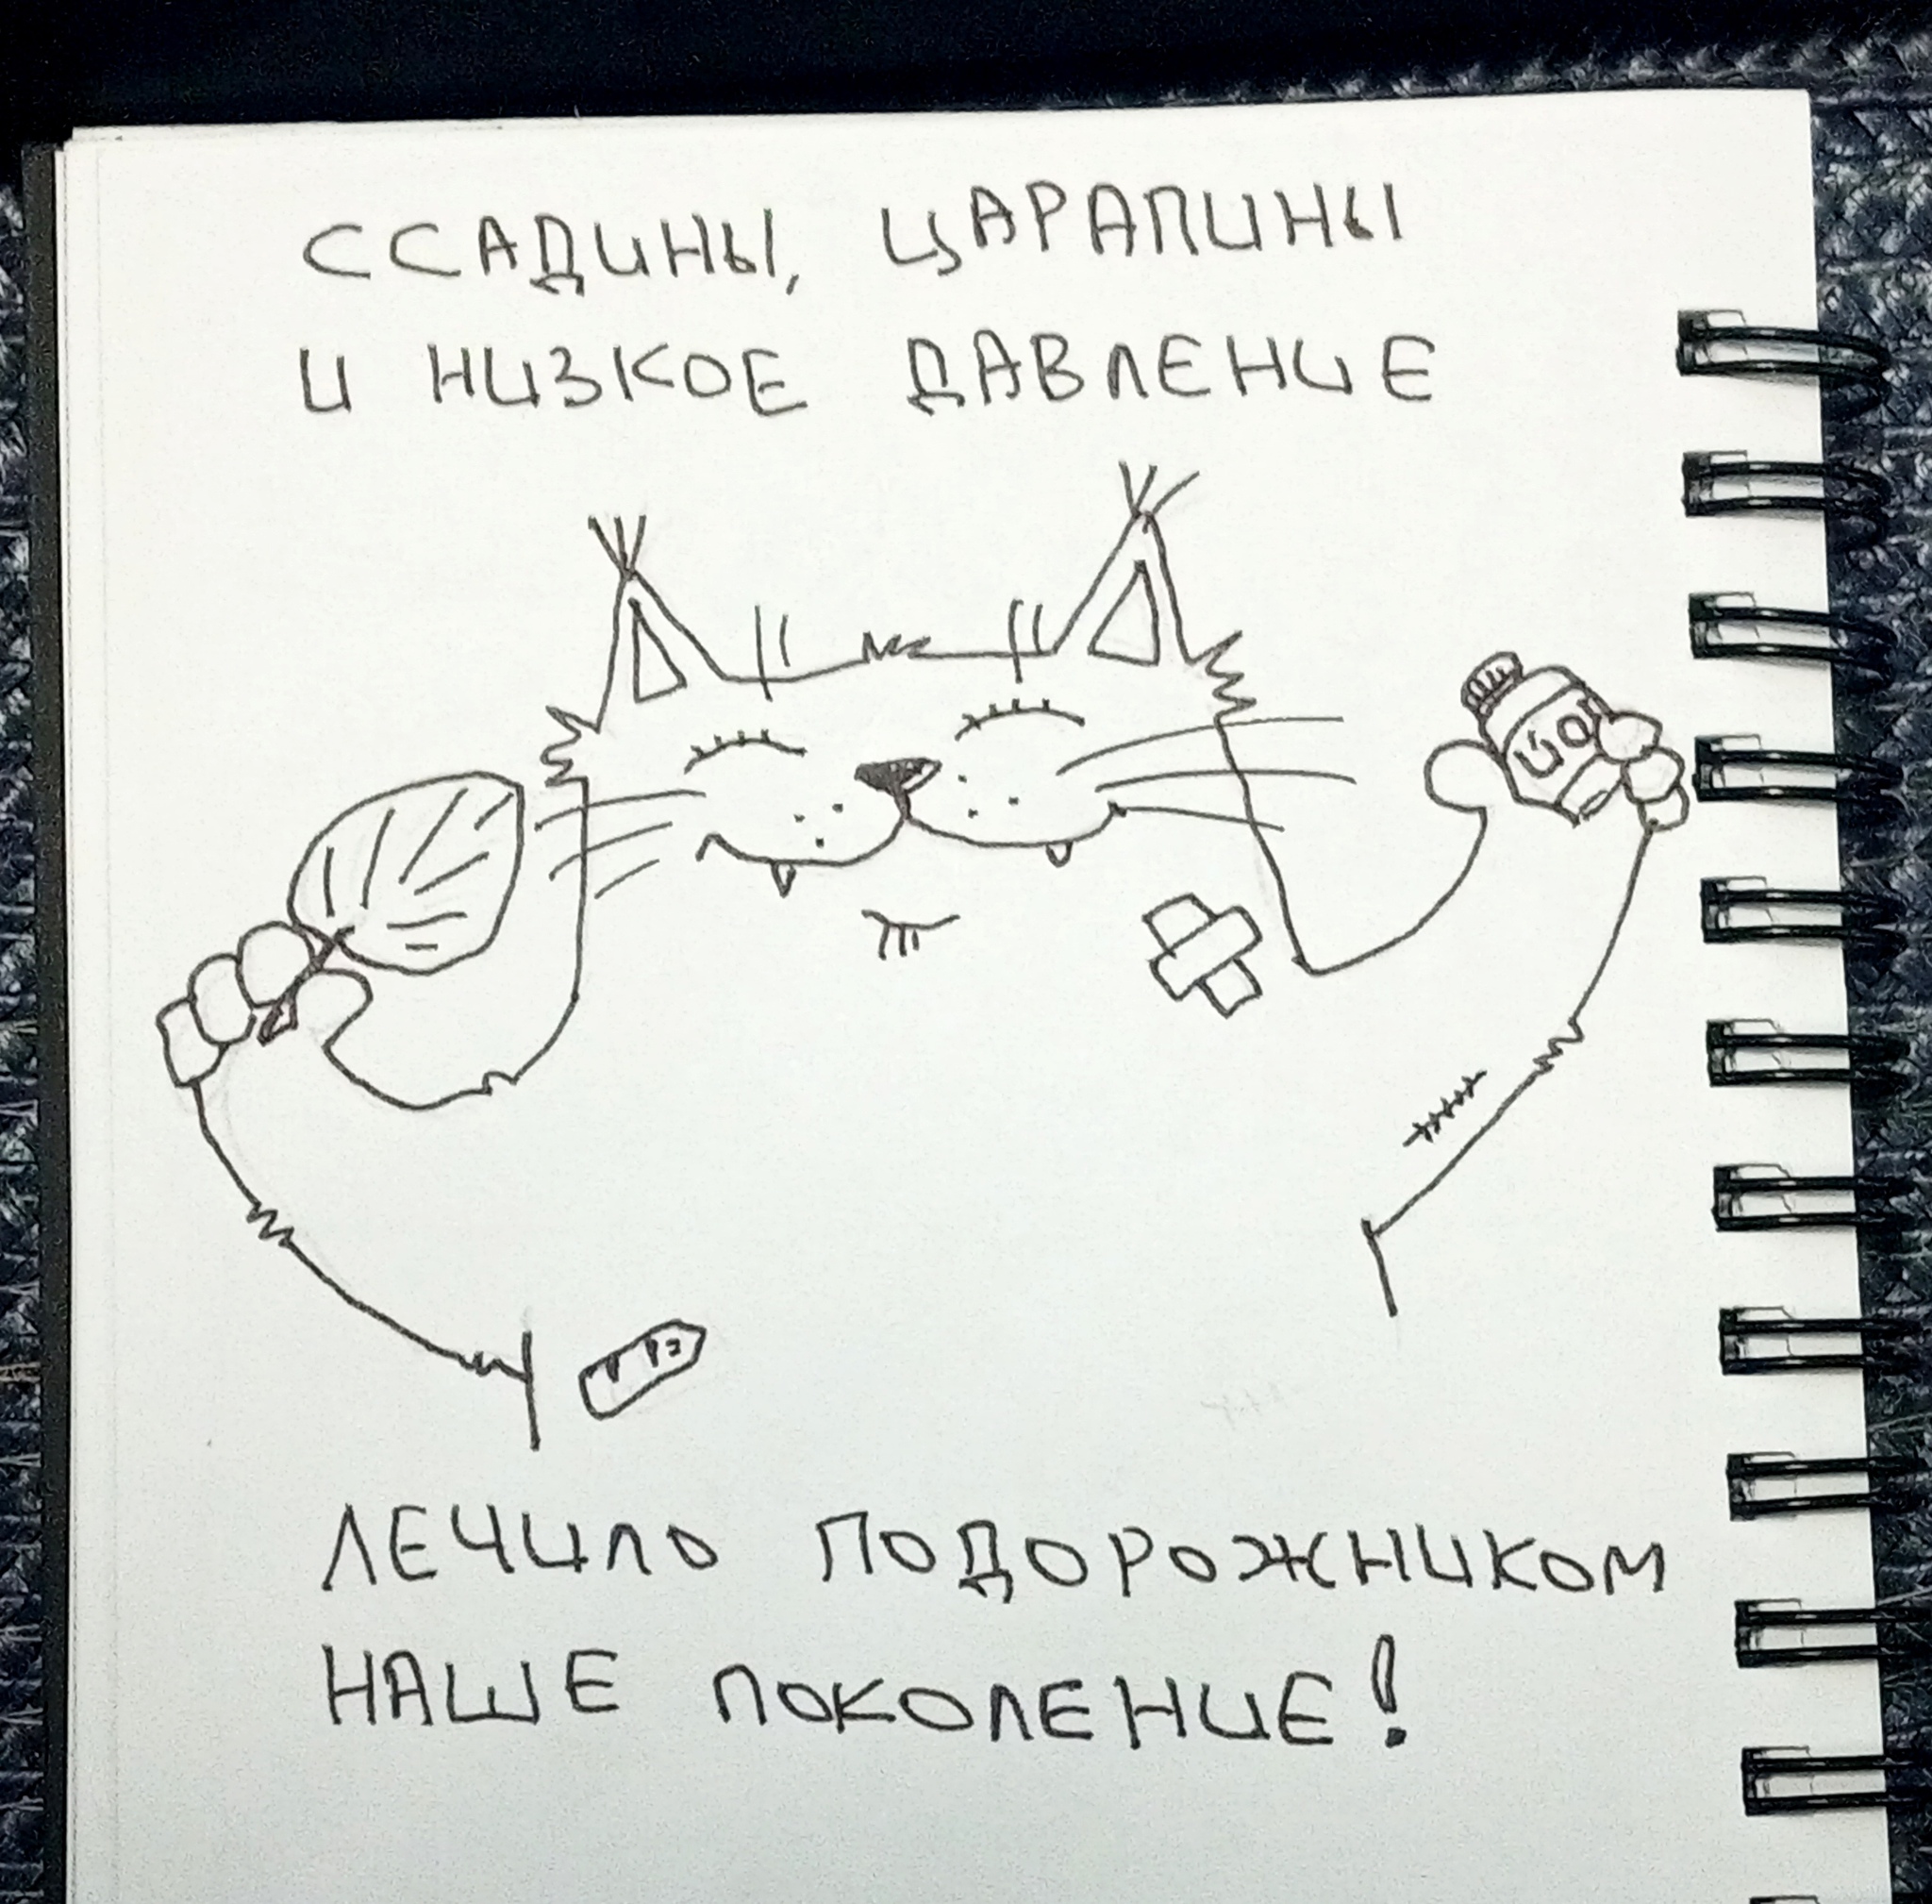 ССАДИНЫ, ЦАРАПИНЫ
И НИЗКОЕ ДАВЛЕНИЕ
ЛЕЧИЛО ПОДОРОЖНИКОМ
НАШЕ ПОКОЛЕНИЕ!